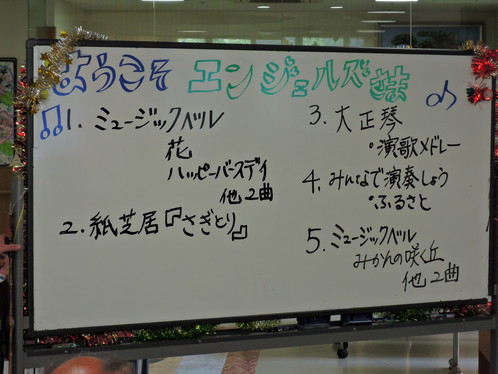 ようこそ エンジェルズ様
1. ミュージックベル
花
ハッピーバースデイ
他2曲
2. 紙芝居『さぎとり』
3. 大正琴
・演歌メドレー
4. みんなで演奏しょう
・ふるさと
5. ミュージックベル
みかんの咲く丘
他2曲